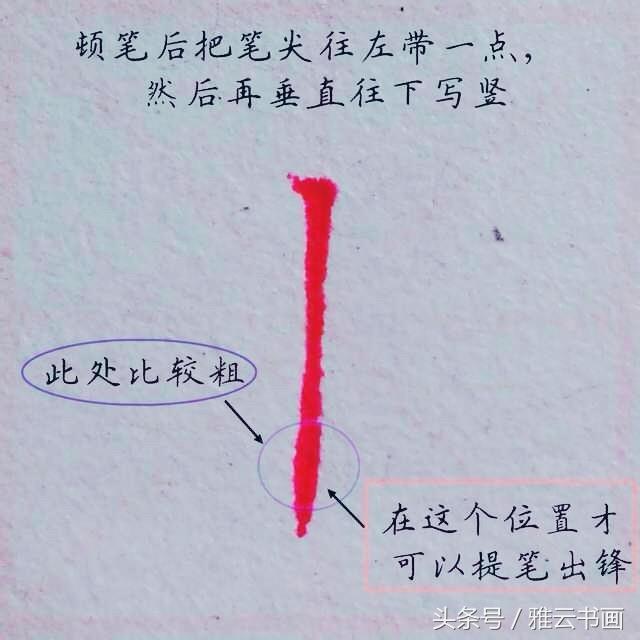 顿笔后把笔尖往左带一点，
然后再垂直往下写竖
此处比较粗
在这个位置才
可以提笔出锋
头条号 / 雅云书画